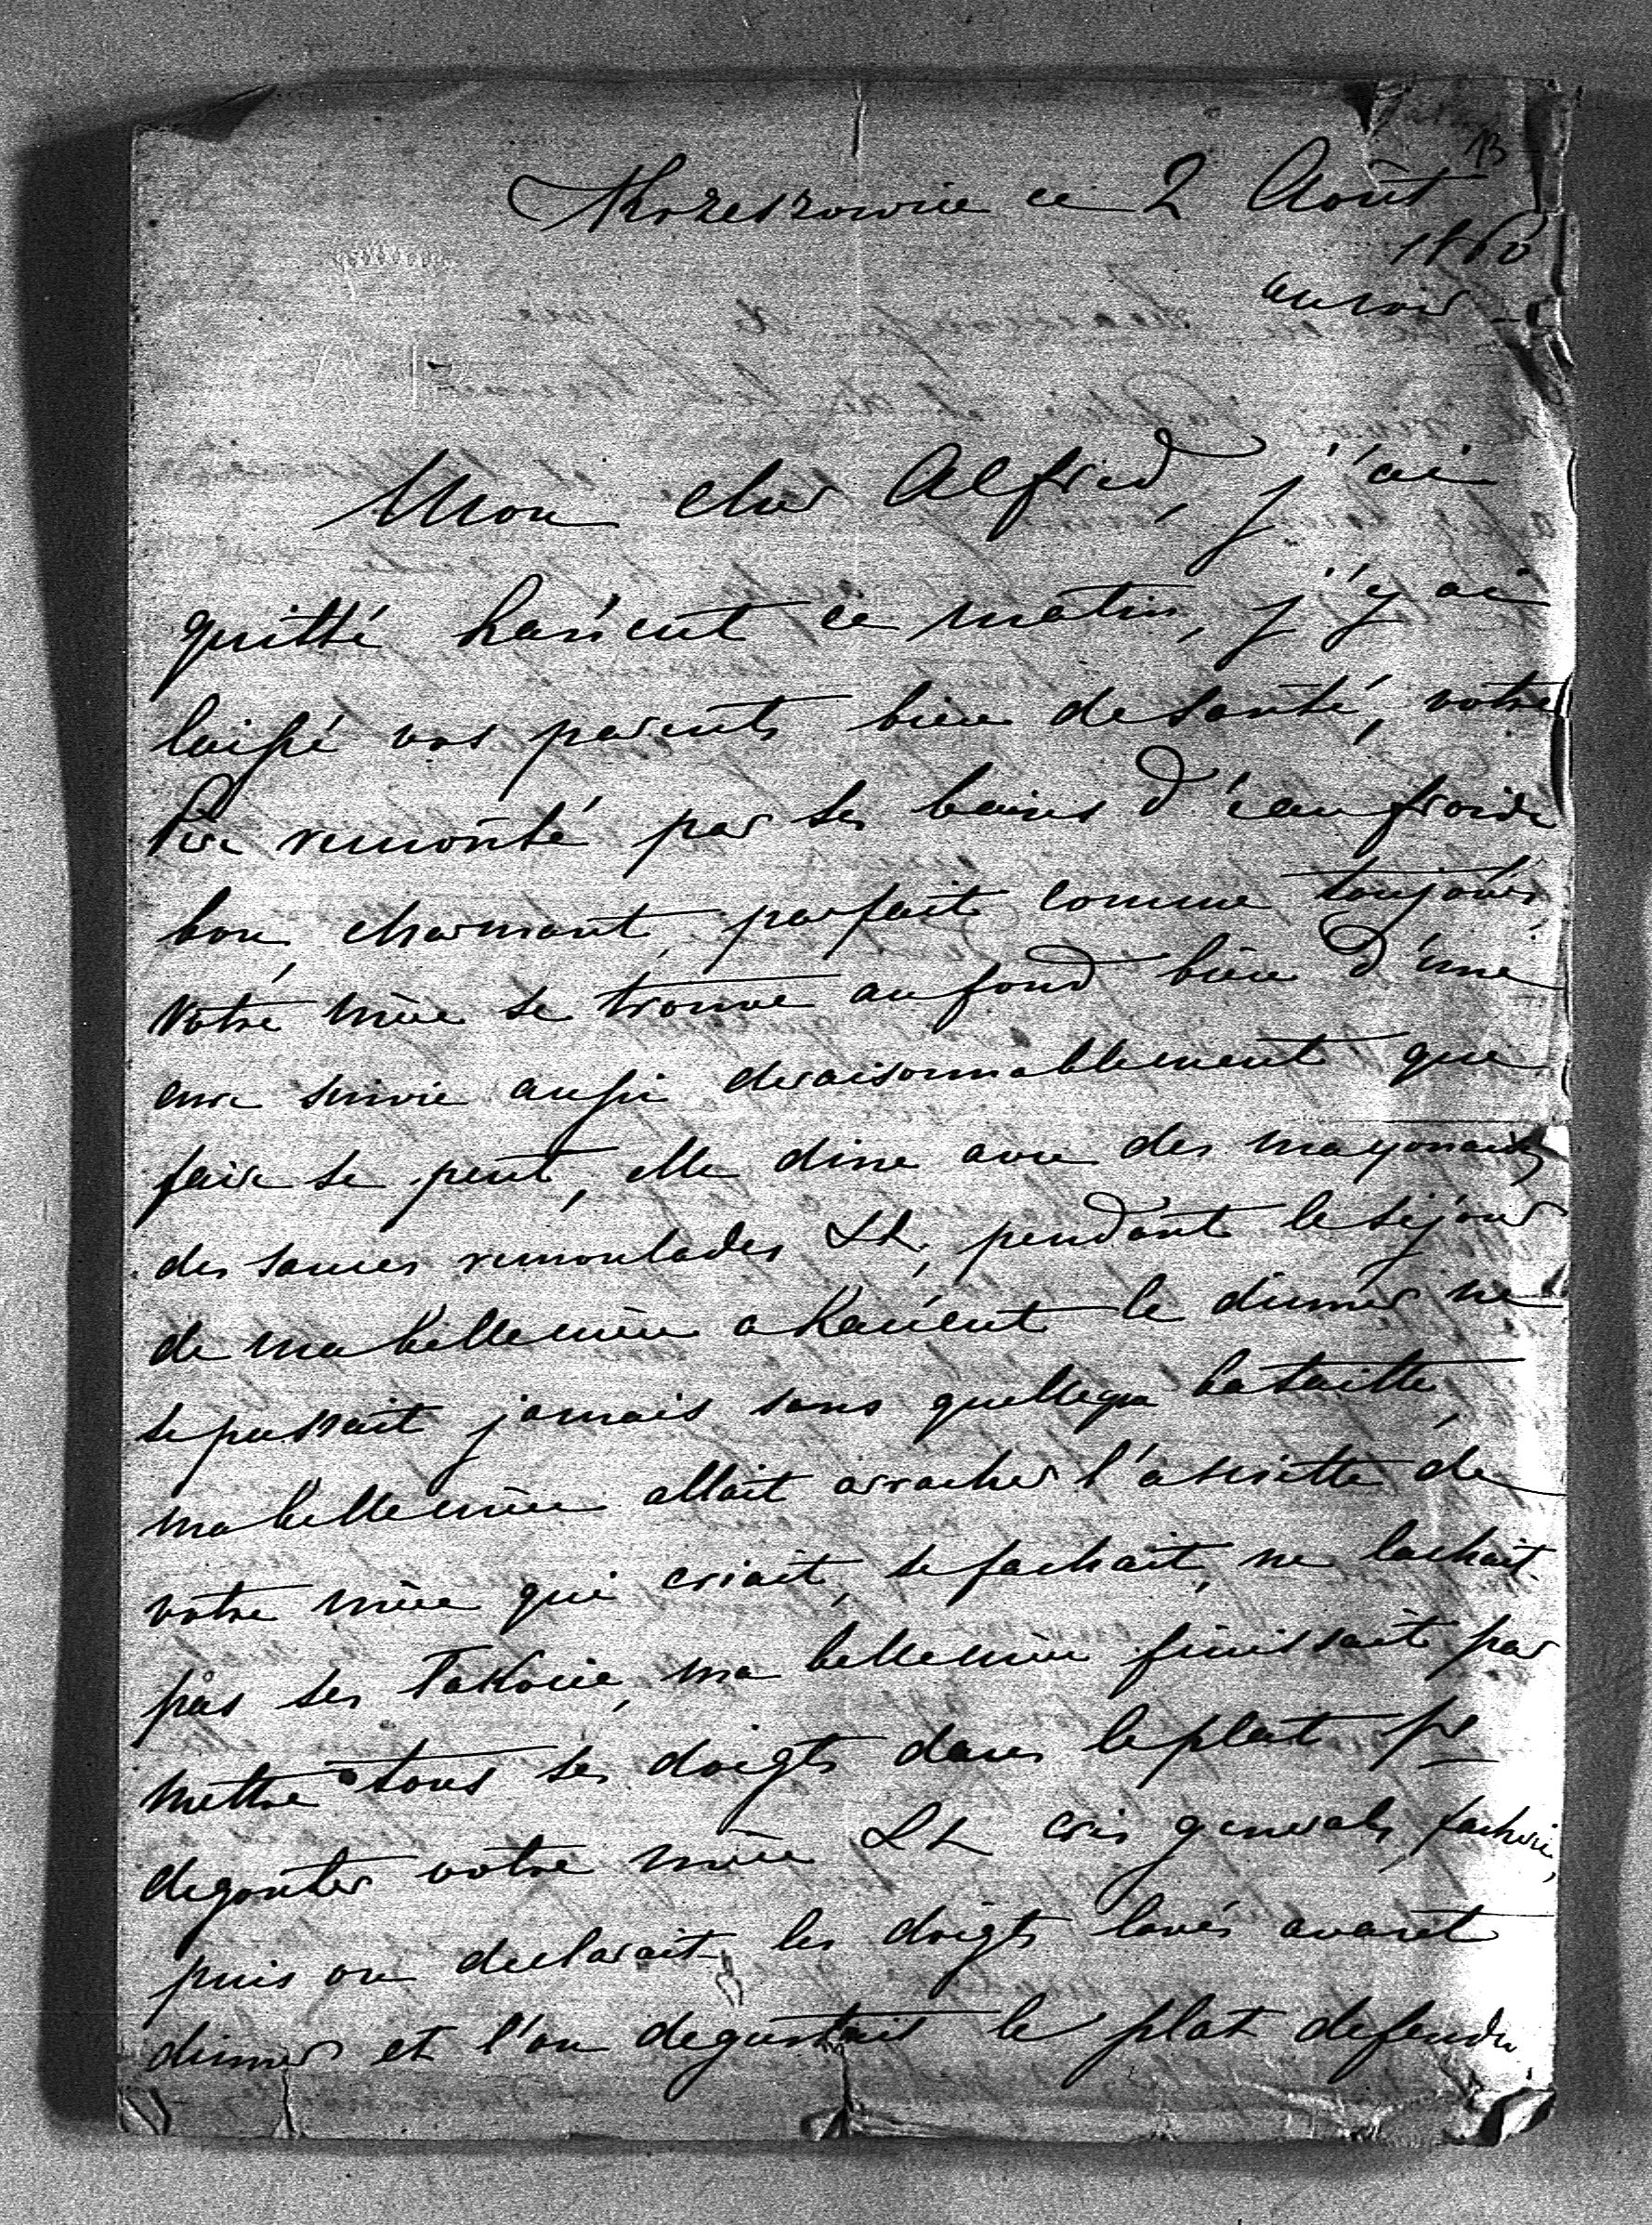 Krzeszowice ce 2 Août
1860
au soir
Mon cher Alfred, j'ai
quitté Łańcut ce matin, j'y ai
laissé vos parents bien de santé, votre
Père remonté par ses bains d'eau froide
bon, charmant, parfait comme toujours,
votre mère se trouve au fond bien d'une
cure suivie aussi deraisonnablement que
faire se peut, elle dine avec des mayonaises
des sauces remoulades &&, pendant le séjour
de ma bellemère a Łańcut le dinner ne
se passait jamais sans quelleque bataille,
ma bellemère allait arracher l'assiette de
votre mère qui criait, se fachait, ne lachait
pas ses łakocie, ma bellemère finissait par
mettre tous ses doigts dans le plat pr
degouter votre mère && cris generals, facherie,
puis on declarait les doigts lavés avant
dinner et l'on degustait le plat defendu